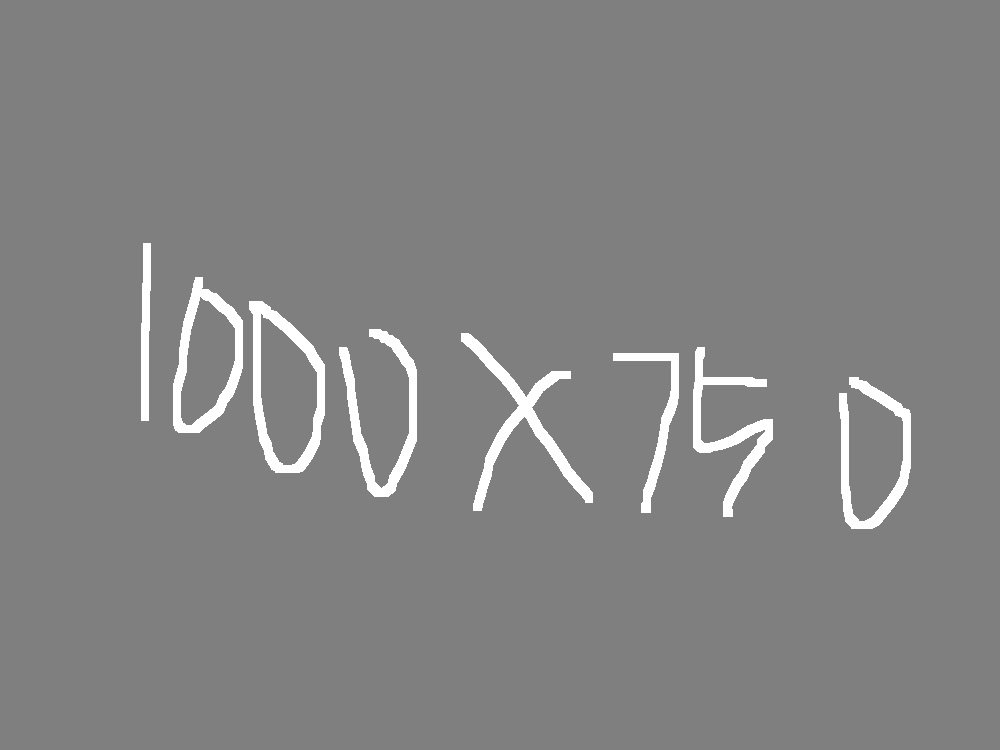 1000 X 750